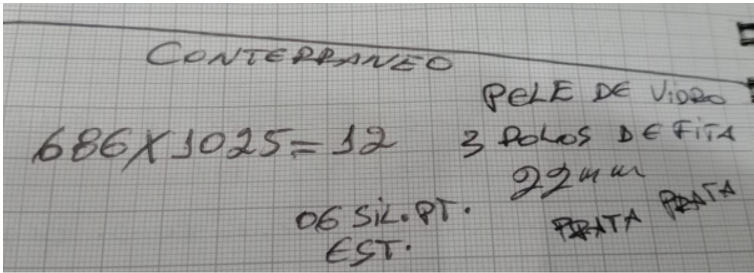 CONTERRANEO
PELE DE VIDRO
686X1025=12
3 ROLOS DE FITA
22mm
06 SIL. PT.
PRATA PRATA
EST.